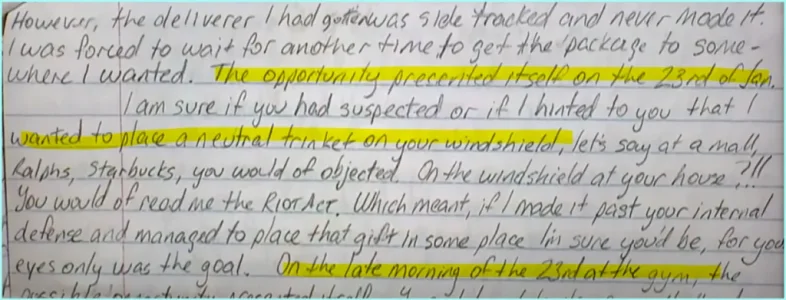 However, the deliverer I had gotten was side tracked and never made it.
I was forced to wait for another time to get the package to some-
where I wanted. The opportunity presented itself on the 23rd of Jan.
I am sure if you had suspected or if I hinted to you that I
wanted to place a neutral trinket on your windshield, let's say at a mall,
Ralphs, Starbucks, you would of objected. On the windshield at your house?!!
You would of read me the RIOT ACT. Which meant, if I made it past your internal
defense and managed to place that gift in some place I'm sure you'd be, for you
eyes only was the goal. On the late morning of the 23rd at the gym, the